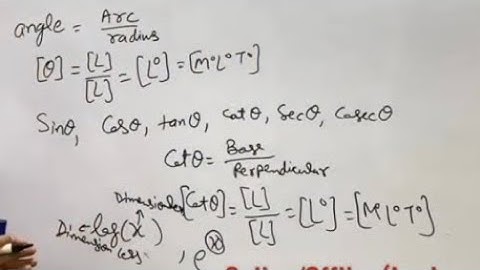 angle = Arc/radius
[θ] = [L]/[L] = [L°] = [M°L°T°]
Sinθ, Cosθ, tanθ, Cotθ, Secθ, Cosecθ
Cotθ = Base/Perpendicular
Dimension [Cotθ] = [L]/[L] = [L°] = [M L°T°]
log(x), e^(x)
Dimension less.